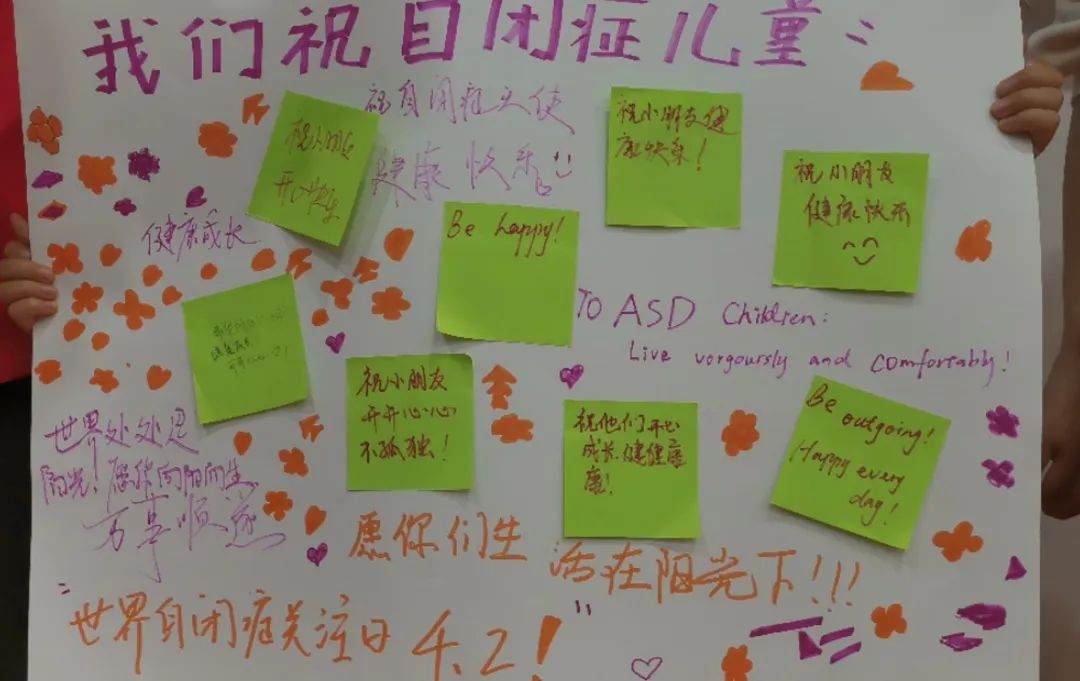 我们祝自闭症儿童:
祝自闭症天使
健康快乐
祝小朋友
开心快乐
祝小朋友健
康快乐!
祝小朋友
健康快乐
健康成长
Be happy!
TO ASD Children:
Live vorgoursly and comfortably!
祝小朋友
开开心心
不孤独!
祝他们开心
成长,健健康
康!
Be outgoing!
Happy every
day!
世界处处是
阳光!愿你向阳而生,
万事顺遂
愿你们生活在阳光下!!!
"世界自闭症关注日 4.2!"